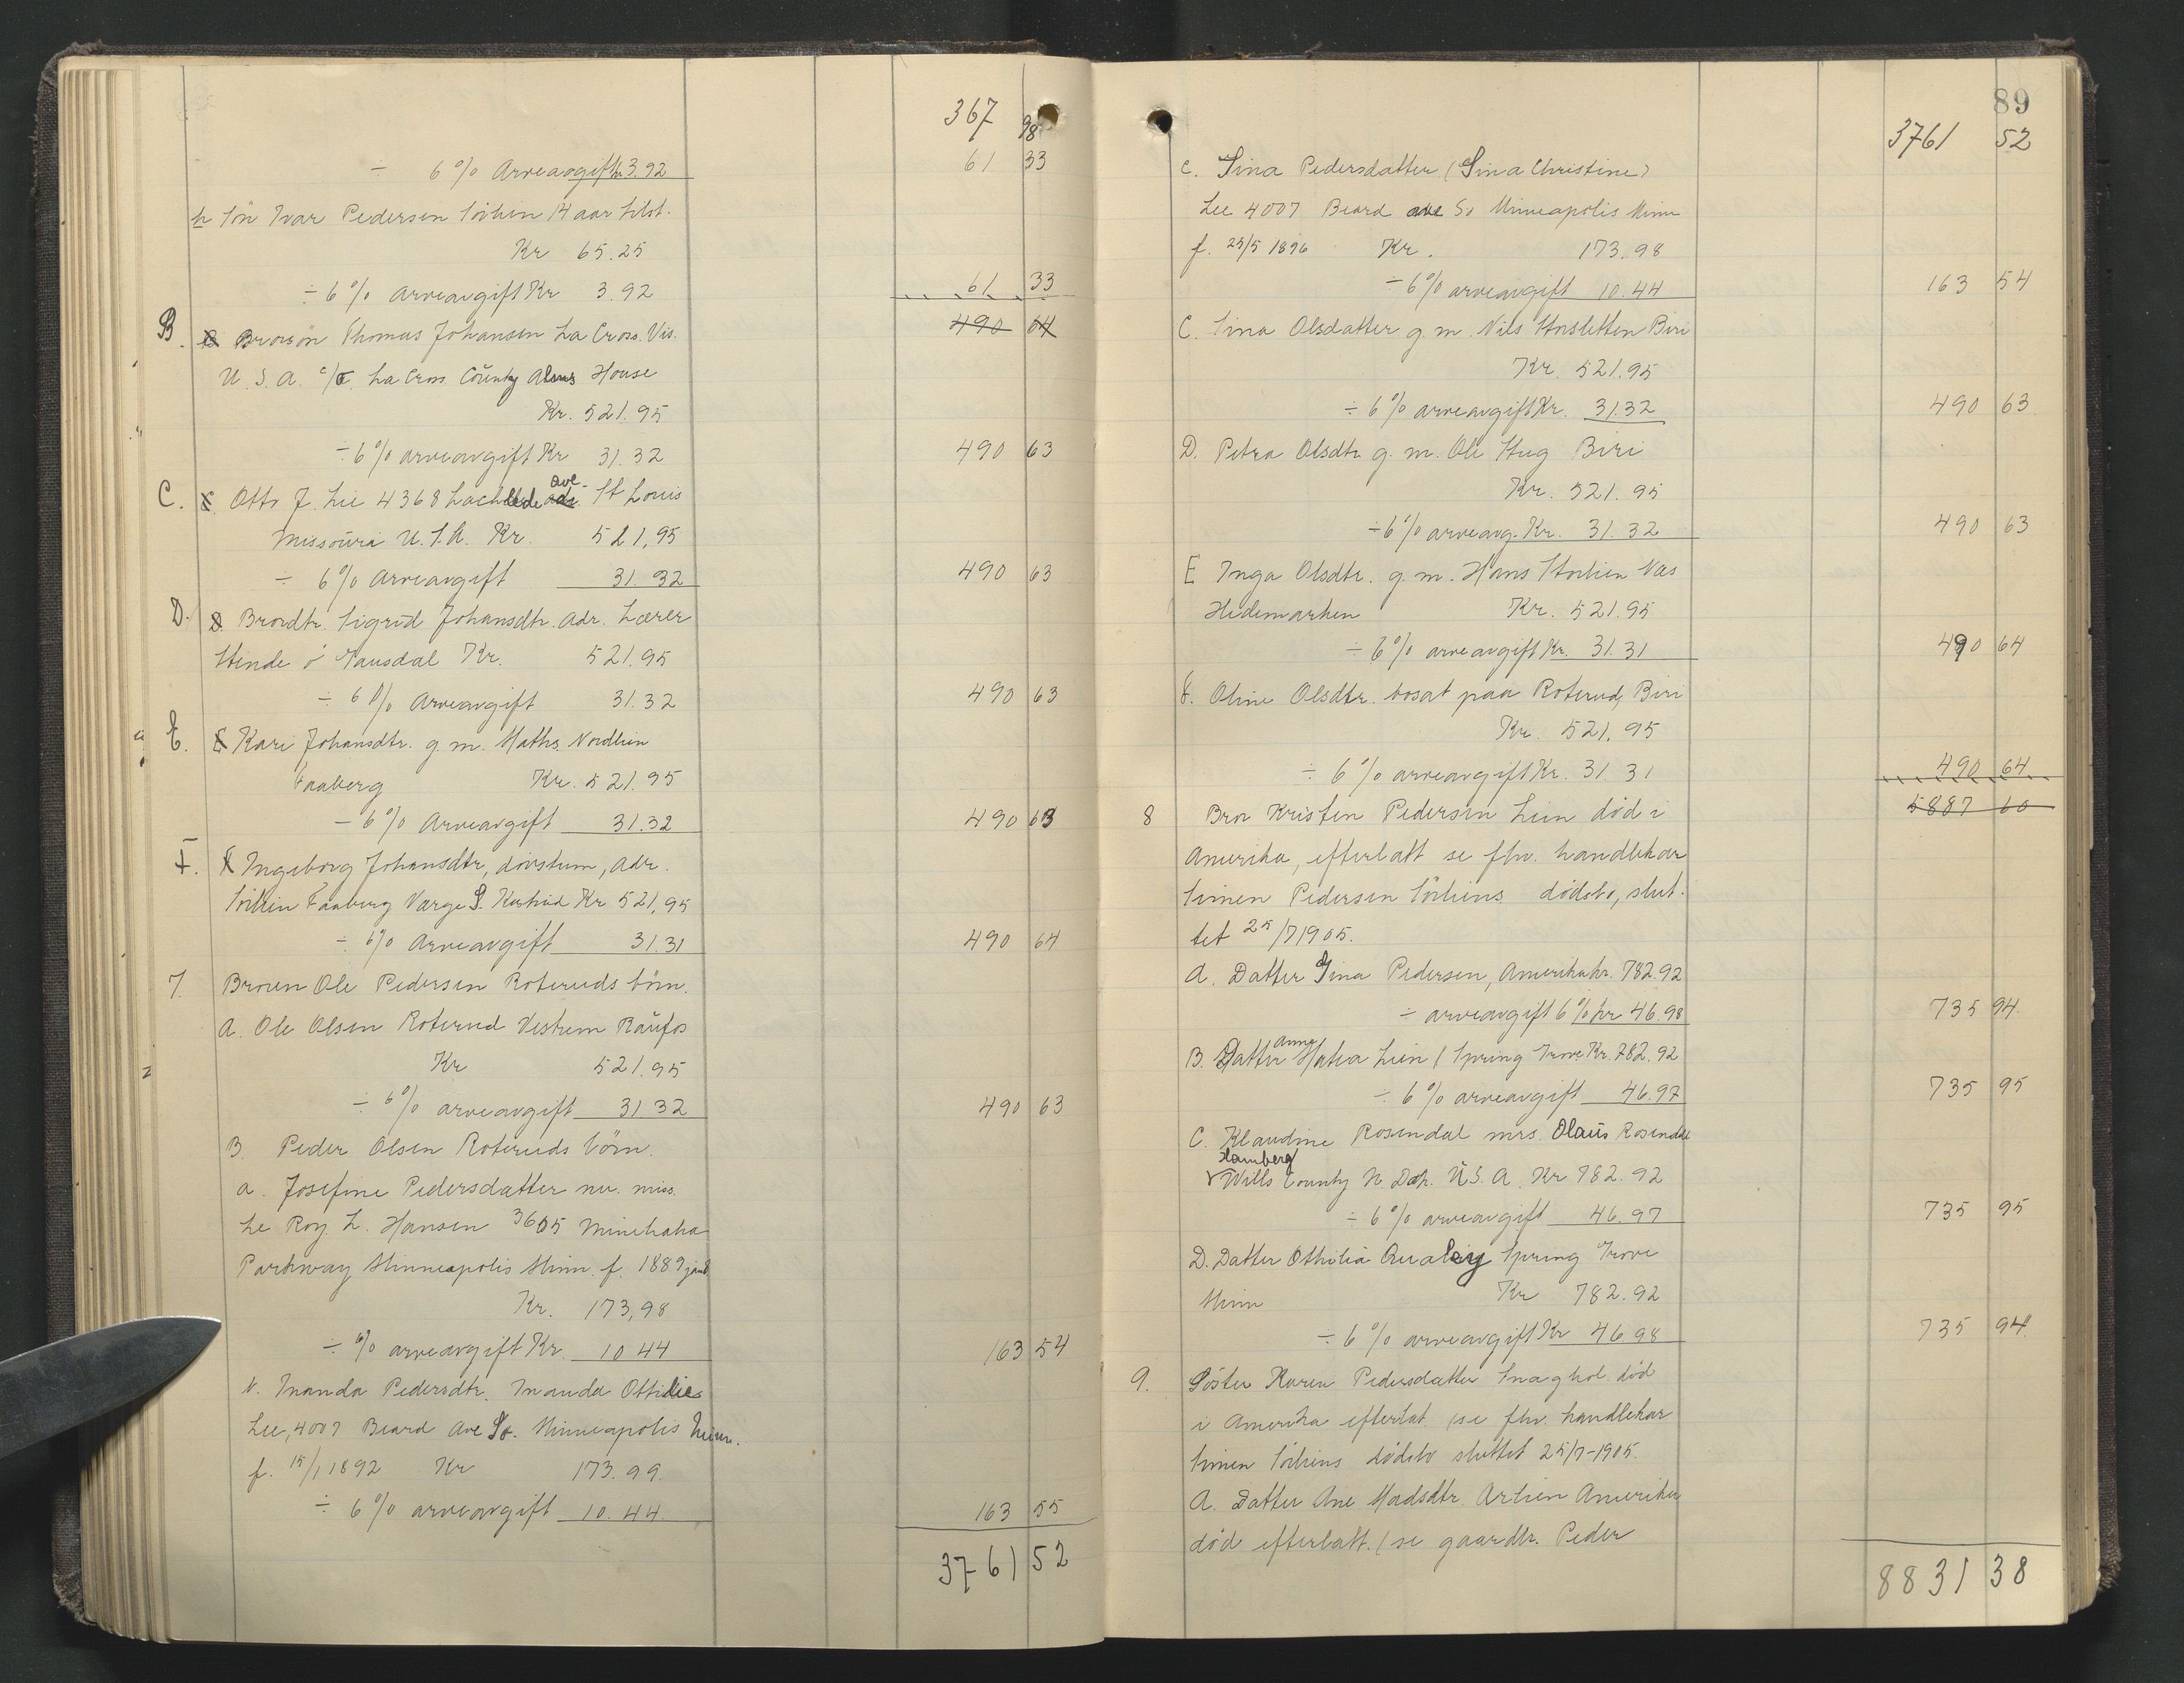 367 98
÷ 6 % Arveavgift kr 3.92 61 33
h Sön Ivar Pedersen Sörlien 14 aar tilst.
Kr 65.25
÷ 6 % arveavgift Kr 3.92 61 33
B. Brorsön Thomas Johansen La Cross. Vis. 490 64
U. S. A. c/o La Cross County Alms House
Kr. 521.95
÷ 6 % arveavgift Kr 31.32 490 63
C. Otto J. Lie 4368 Lachlede ave. St Louis
Missouri U.S.A. Kr. 521,95
÷ 6 % Arveavgift 31.32 490 63
D. Brordtr. Sigrid Johansdtr. adr. Lærer
Stende i Gausdal Kr. 521.95
÷ 6 % Arveavgift 31.32 490 63
E. Kari Johansdtr. g. m. Maths. Nordlien
Faaberg Kr. 521.95
÷ 6 % Arveavgift 31.32 490 63
F. Ingeborg Johansdtr, dövstum, adr.
Sörlien Faaberg Værge S. Kustrud Kr 521,95
÷ 6 % Arveavgift 31.31 490 64
7. Broren Ole Pedersen Roteruds börn.
A. Ole Olsen Roterud Vestrem Raufos
Kr 521.95
÷ 6 % arveavgift 31 32 490 63
B. Peder Olsen Roteruds börn.
a. Josefine Pedersdatter nu. miss.
Le Roy L. Hansen 3605 Minehaha
Parkway Minneapolis Minn. f. 1889
Kr. 173,98
÷ 6 % arveavgift Kr. 10 44 163 54
b. Inanda Pedersdtr. Inanda Ottilie
Lee, 4007 Beard Ave So. Minneapolis Minn.
f. 15/1 1892 Kr 173.99.
÷ 6 % arveavgift 10.44. 163 55
3761 52
89
3761 52
c. Gina Pedersdatter (Gina Christine)
Lee 4007 Beard ave So Minneapolis Minn
f. 25/5 1896 Kr. 173.98
÷ 6 % arveavgift 10.44 163 54
C. Sina Olsdatter g. m. Nils Stusletten Biri
Kr. 521.95
÷ 6 % arveavgift Kr. 31.32 490 63
D. Petra Olsdtr g. m. Ole Hug Biri
Kr. 521.95
÷ 6 % arveavg. Kr. 31.32 490 63
E Inga Olsdtr. g. m. Hans Storlien Næs
Hedemarken Kr. 521.95
÷ 6 % arveavgift Kr. 31.31 490 64
F. Oline Olsdtr. bosat paa Roterud, Biri
Kr. 521.95
÷ 6 % arveavgift Kr. 31 31 490 64
8 Bror Kristen Pedersen Lien död i 5887 60
Amerika, efterlatt se fhv. handlekar
Simen Pedersen Sörliens dödsbo, slut-
tet 25/7 1905.
A. Datter Gina Pedersen, Amerika kr. 782.92
÷ arveavgift 6 % kr 46.98 735 94
B. Datter Anna Matea Lien (Spring Grove Kr. 782.92
÷ 6 % arveavgift 46.97 735 95
C. Klaudine Rosendal mrs. Olaus Rosendal
Hamberg
Wills County N. Dak. U.S. A. Kr 782.92
÷ 6 % arveavgift 46.97 735 95
D. Datter Othilia Qualey Spring Grove
Minn Kr 782.92
÷ 6 % arveavgift Kr 46 98 735 94
9. Söster Karen Pedersdatter Snaghol död
i Amerika efterlat. (se fhv. handlekar
Simen Sörliens dödsbo sluttet 25/7-1905.
A. Datter Ane Madsdtr. Arlien Amerika
död efterlatt. (se gaardbr. Peder
8831 38